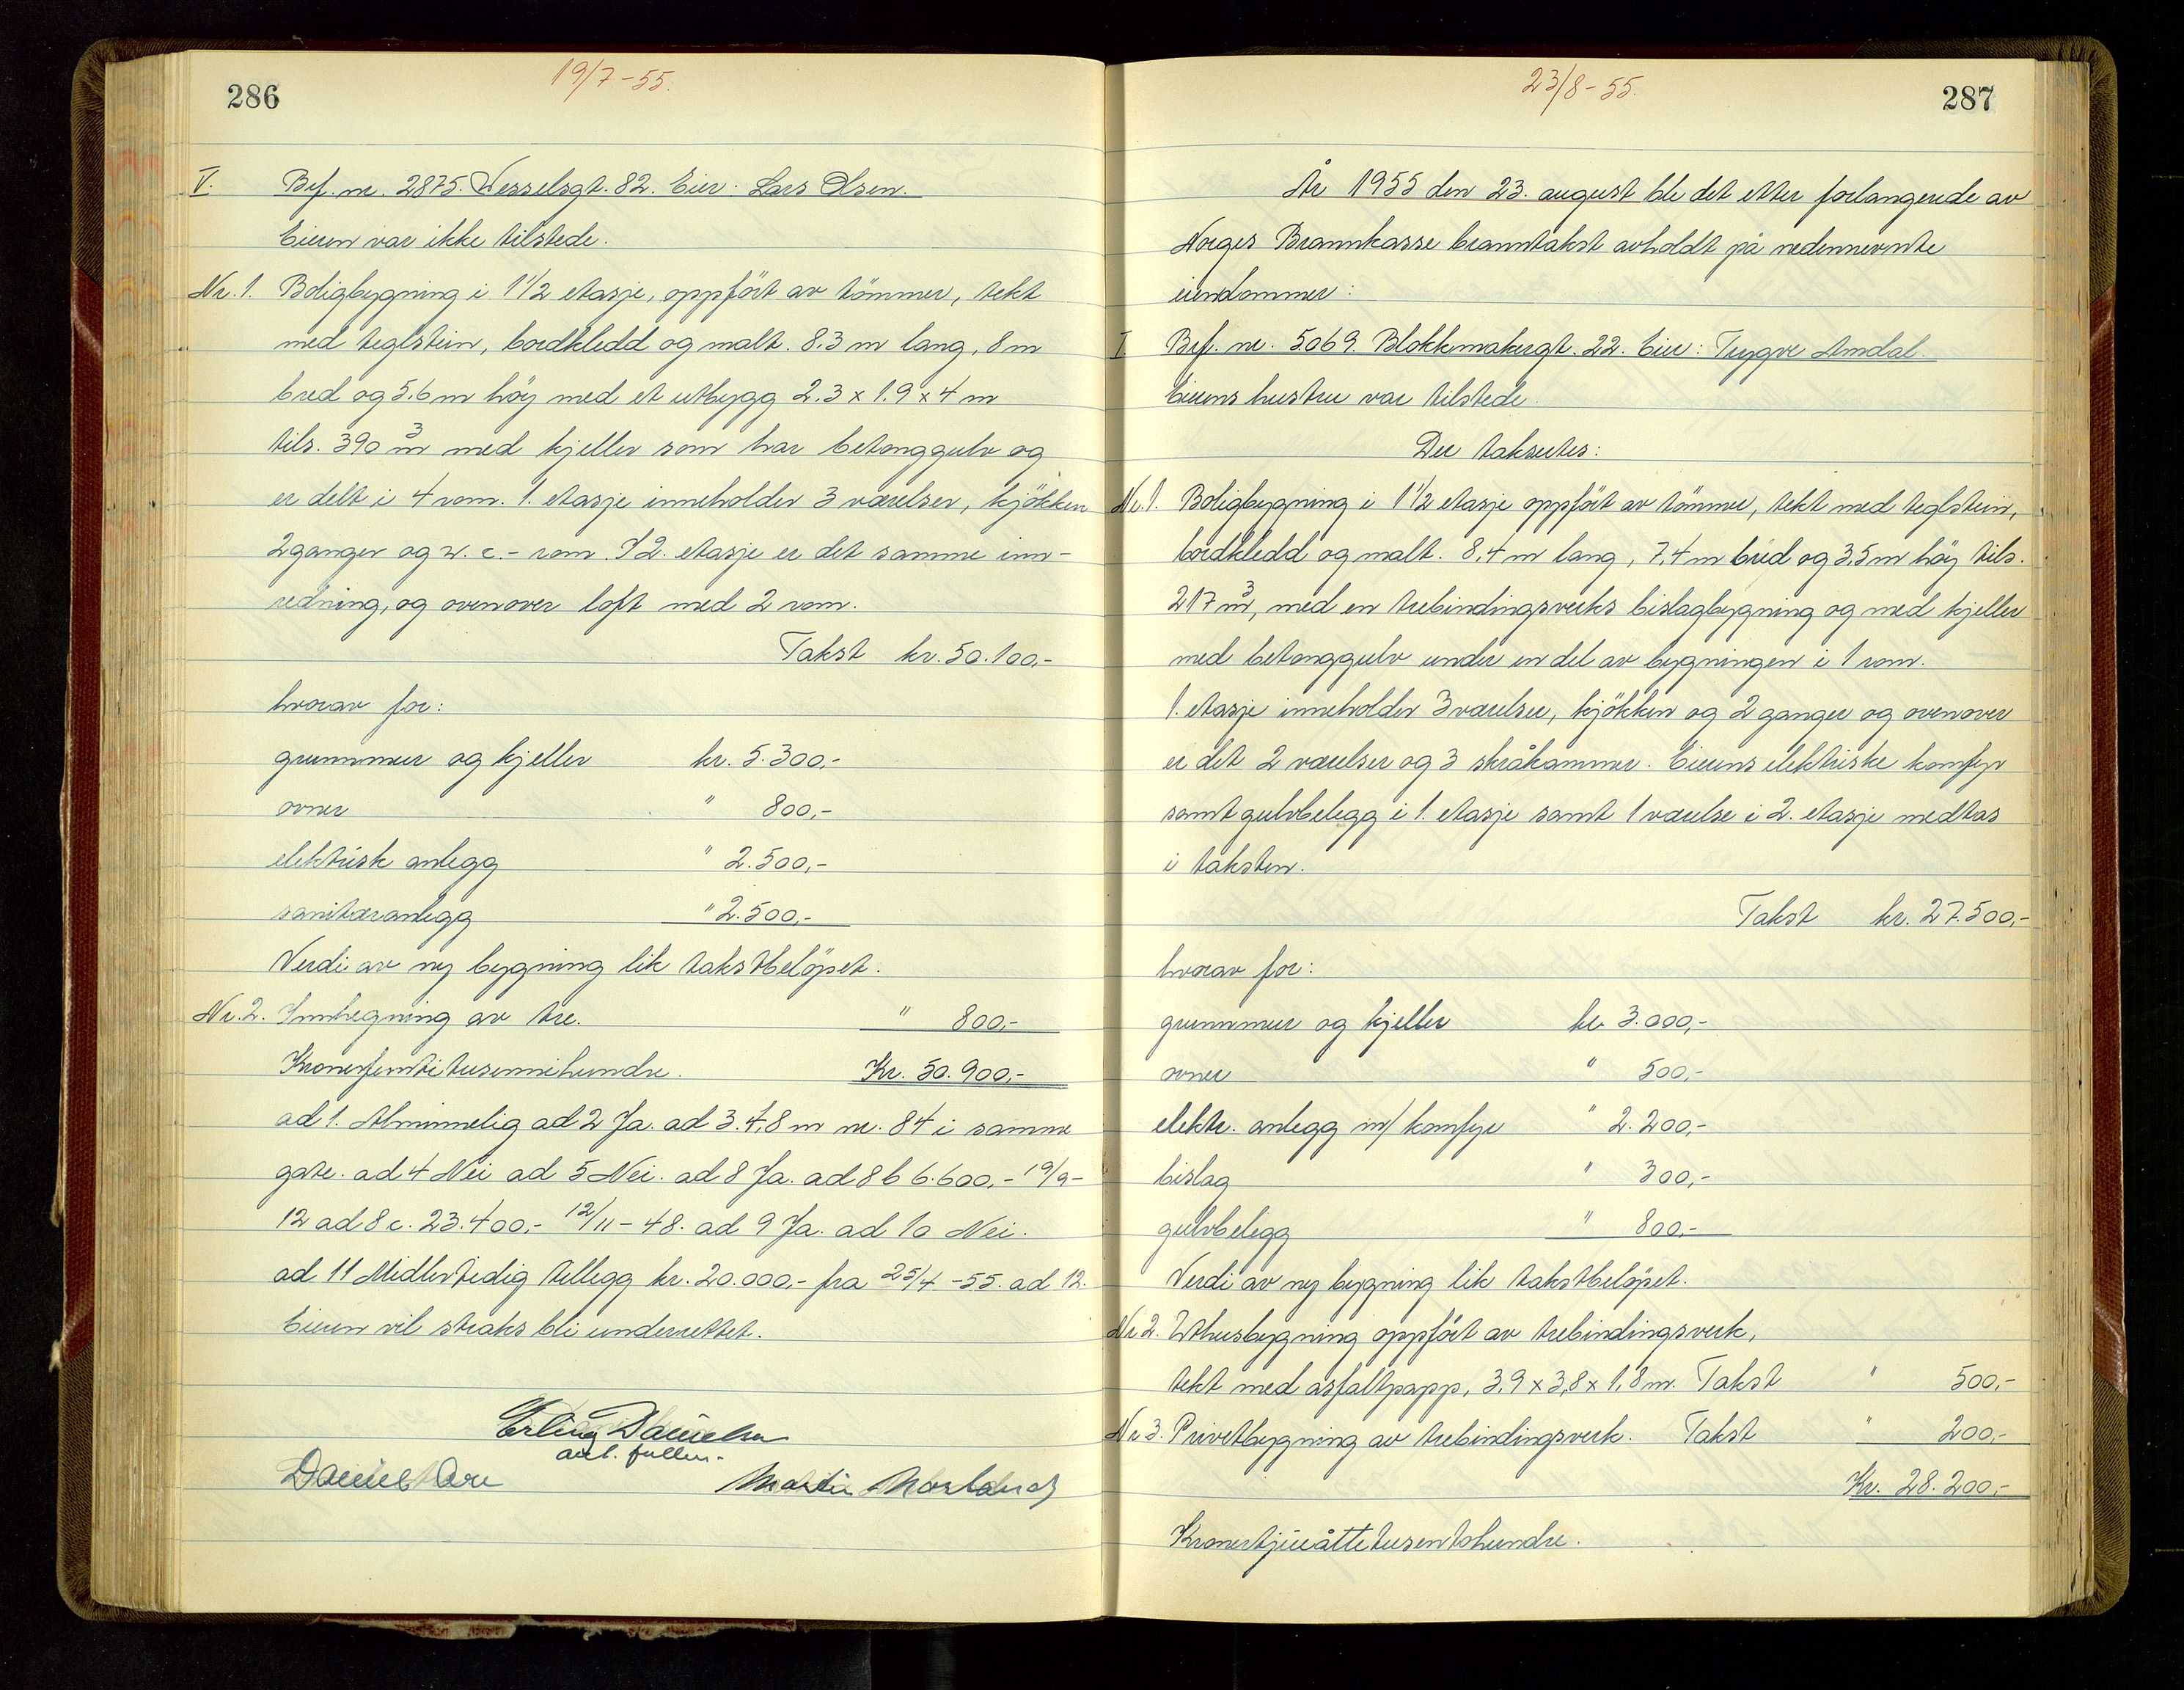 286
19/7-55.
V. Brf. nr. 2875. Wesselsgt. 82. Eier: Lars Olsen.
Eieren var ikke tilstede.
Nr. 1. Boligbygning i 1 1/2 etasje, oppfört av tömmer, tekt
med teglstein, bordkledd og malt. 8.3 m lang, 8 m
bred og 5.6 m höy med et utbygg 2.3 x 1.9 x 4 m
tils. 390 m³ med kjeller som har betonggulv og
er delt i 4 rom. 1. etasje inneholder 3 værelser, kjökken
2 ganger og w. c. - rom. I 2. etasje er det samme inn-
redning, og ovenover loft med 2 rom.
Takst kr. 50.100,-
hvorav for:
grunnmur og kjeller kr. 5.300,-
ovner " 800,-
elektrisk anlegg " 2.500,-
sanitæranlegg " 2.500,-
Verdi av ny bygning lik takstbelöpet.
Nr. 2. Innhegning av tre. " 800,-
Kronerfemtitusennihundre. Kr. 50.900,-
ad 1. Alminnelig ad 2 Ja. ad 3. 4,8 m nr. 84 i samme
gate. ad 4 Nei ad 5 Nei. ad 8 Ja. ad 8 b 6.600,- 19/9-
12 ad 8 c. 23.400,- 12/11-48. ad 9 Ja. ad 10 Nei.
ad 11 Midlertidig tillegg kr. 20.000,- fra 25/4-55. ad 12.
Eieren vil straks bli underrettet.
Erling Danielsen
Daniel Martin
287
23/8-55.
År 1955 den 23. august ble det etter forlangende av
Norges Brannkasse branntakst avholdt på nedennevnte
eiendommer:
I. Brf. nr. 5069. Blokkmakergt. 22. Eier: Trygve Amdal.
Eierens hustru var tilstede.
Der takseres:
Nr. 1. Boligbygning i 1 1/2 etasje oppfört av tömmer, tekt med teglstein,
bordkledd og malt. 8,4 m lang, 7,4 m bred og 3,5 m höy tils.
217 m³, med en trebindingsverks bislagbygning og med kjeller
med betonggulv under en del av bygningen i 1 rom.
1. etasje inneholder 3 værelser, kjökken og 2 ganger og ovenover
er det 2 værelser og 3 skråkammer. Eierens elektriske komfyr
samt gulvbelegg i 1. etasje samt 1 værelse i 2. etasje medtas
i taksten.
Takst kr. 27.500,-
hvorav for:
grunnmur og kjeller kr. 3.000,-
ovner " 500,-
elektr. anlegg m/ komfyr " 2.200,-
bislag " 300,-
gulvbelegg " 800,-
Verdi av ny bygning lik takstbelöpet.
Nr 2. Uthusbygning oppfört av trebindingsverk,
tekt med asfaltpapp, 3,9 x 3,8 x 1,8 m. Takst " 500,-
Nr 3. Privetbygning av trebindingsverk. Takst " 200,-
Kr. 28.200,-
Kronertjueåttetusentohundre.